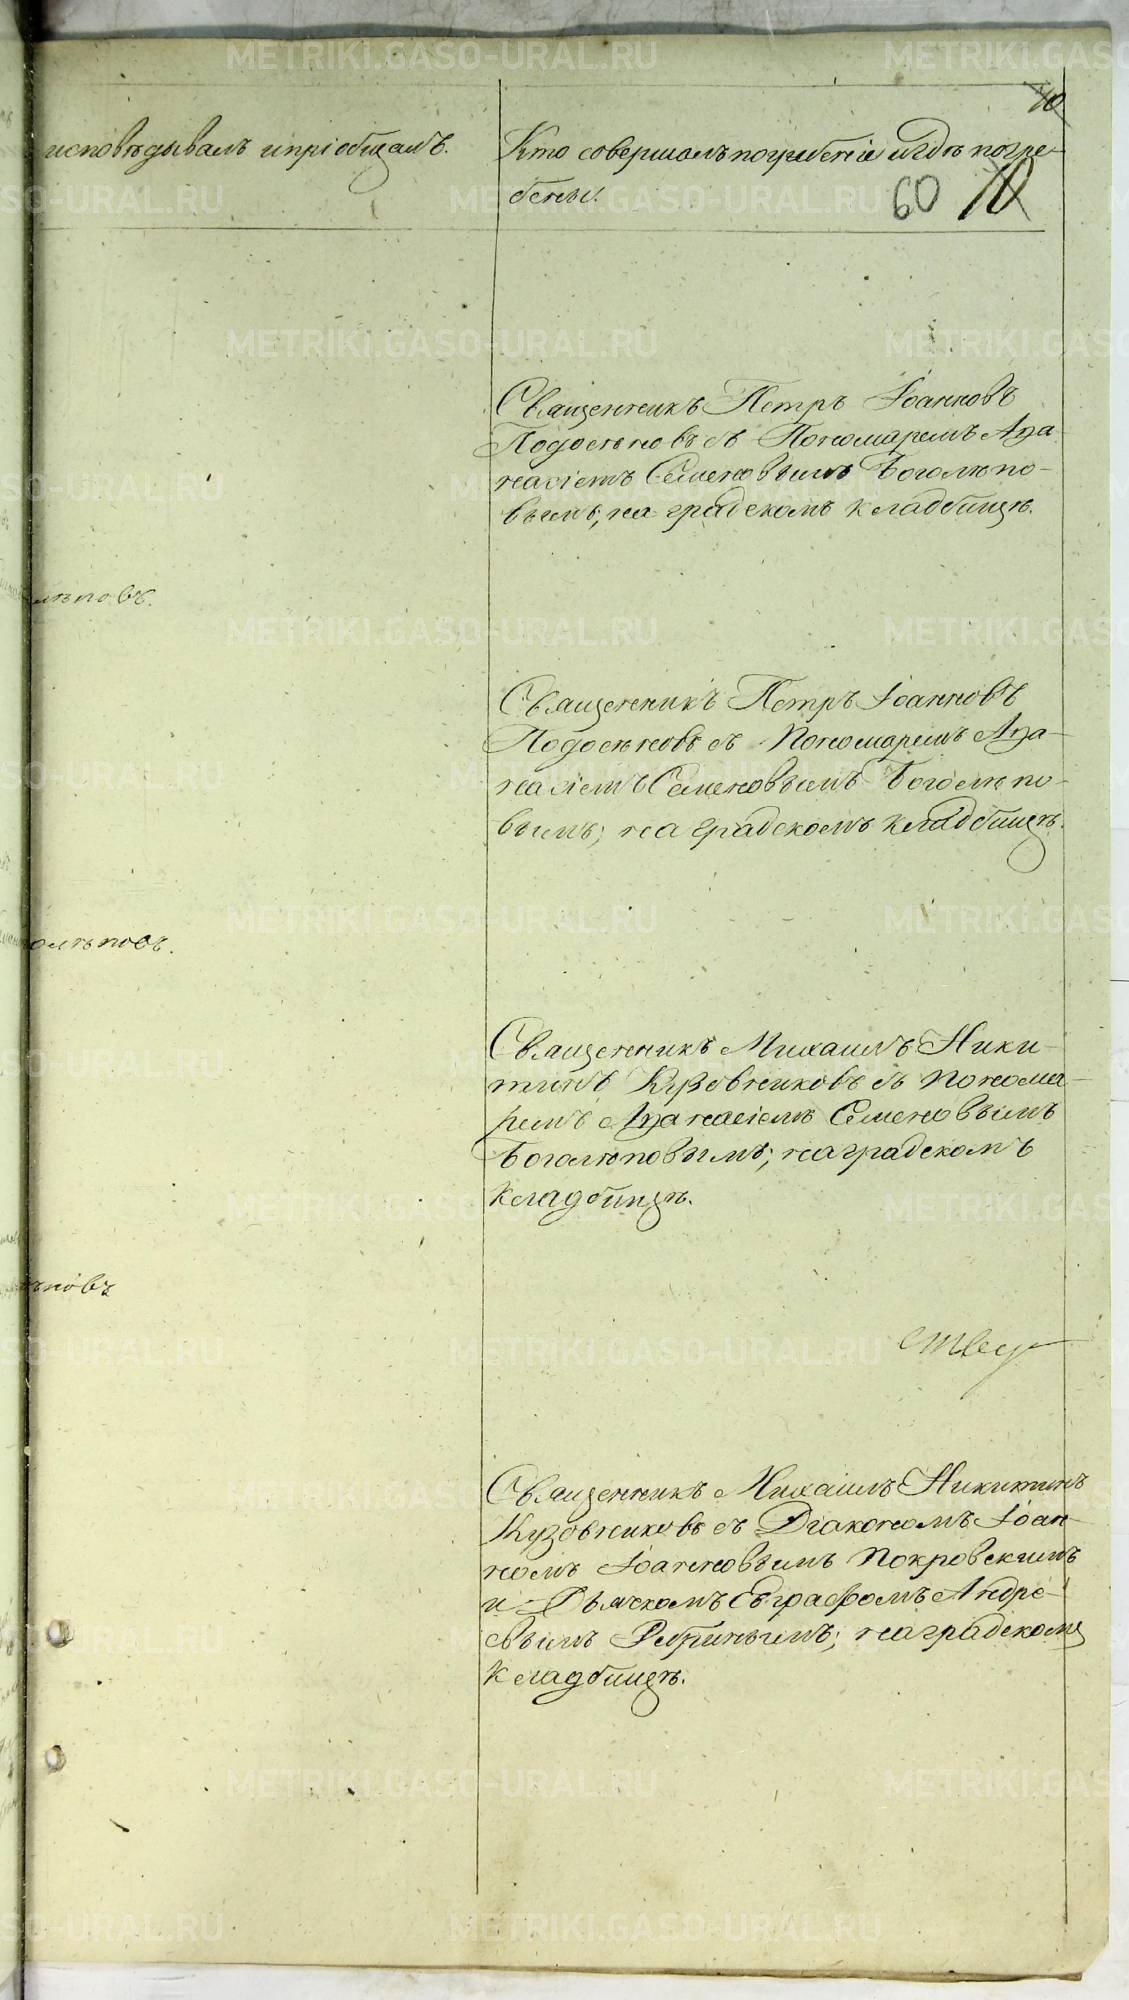 10
исповѣдывалъ и пріобщалъ.
Кто совершалъ погребеніе и гдѣ погре-
бены.
60 10
Священникъ Петръ Іоанновъ
Подосѣновъ съ Пономаремъ Аѳа-
насіемъ Семеновымъ Боголѣпо-
вымъ, на градскомъ кладбищѣ.
лѣповъ.
Священникъ Петръ Іоанновъ
Подосѣновъ съ Пономаремъ Аѳа-
насіемъ Семеновымъ Боголѣпо-
вымъ; на градскомъ кладбищѣ.
олѣповъ.
Священникъ Михаилъ Ники-
тинъ Кузовниковъ съ Понома-
ремъ Аѳанасіемъ Семеновымъ
Боголѣповымъ; на градскомъ
кладбищѣ.
ѣповъ
Священникъ Михаилъ Никитинъ
Кузовниковъ съ Діакономъ Іоан-
номъ Іоанновымъ Покровскимъ
и Дьячкомъ Евграфомъ Андре-
евымъ Рѣпинымъ; на градскомъ
кладбищѣ.
METRIKI.GASO-URAL.RU